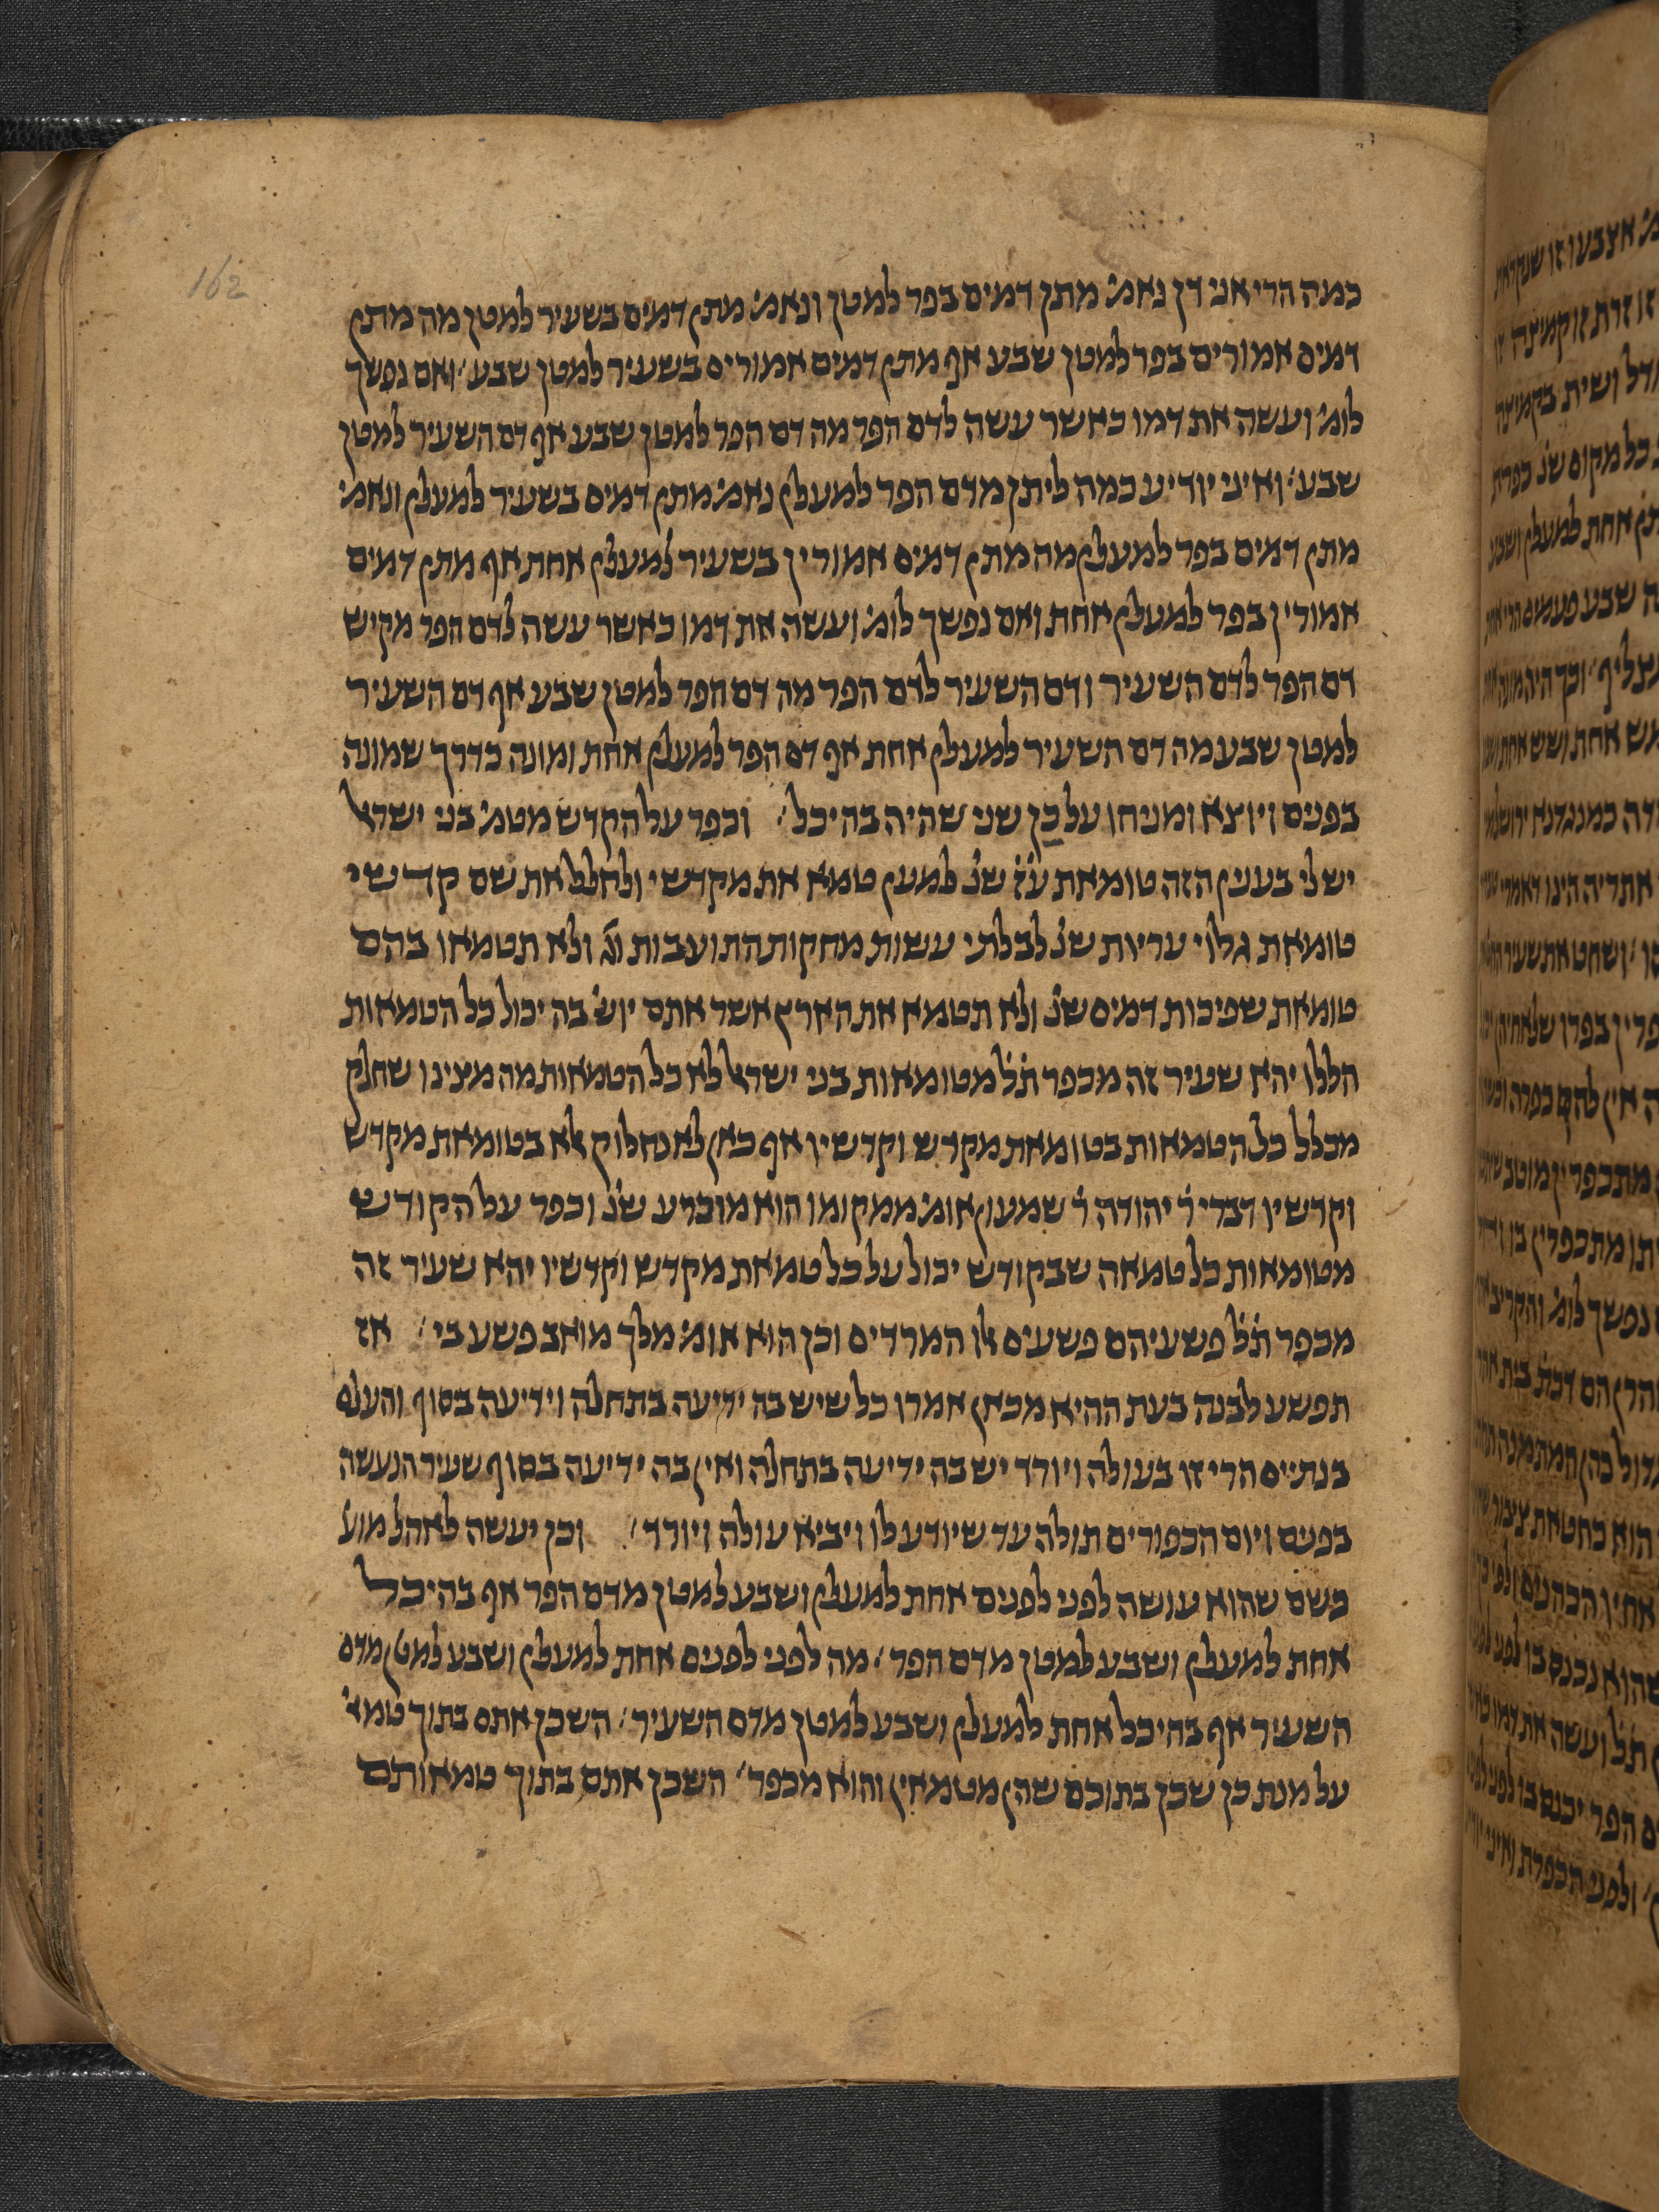 162
כמה הרי אני דן נאמ' מתן דמים בפר למטן ונאמ' מתן דמים בשעיר למטן מה מתן
דמים אמורים בפר למטן שבע אף מתן דמים אמורים בשעיר למטן שבע ואם נפשך
לומ' ועשה את דמו כאשר עשה לדם הפר מה דם הפר למטן שבע אף דם השעיר למטן
שבע ואיני יודיע כמה ליתן מדם הפר למעלן נאמ' מתן דמים בשעיר למעלן ונאמ'
מתן דמים בפר למעלן מה מתן דמים אמורין בשעיר למעלן אחת אף מתן דמים
אמורין בפר למעלן אחת ואם נפשך לומ' ועשה את דמו כאשר עשה לדם הפר מקיש
דם הפר לדם השעיר ודם השעיר לדם הפר מה דם הפר למטן שבע אף דם השעיר
למטן שבע מה דם השעיר למעלן אחת אף דם הפר למעלן אחת ומונה כדרך שמונה
בפנים ויוצא ומניחו על כן שני שהיה בהיכל וכפר על הקדש מטמ' בני ישראל
יש לי בענין הזה טומאת ע'ז' שנ' למען טמא את מקדשי ולחלל את שם קדשי
טומאת גלוי עריות שנ' לבלתי עשות מחקות התועבות וג' ולא תטמאו בהם
טומאת שפיכות דמים שנ' ולא תטמא את הארץ אשר אתם יוש' בה יכול כל הטמאות
הללו יהא שעיר זה מכפר ת'ל' מטומאות בני ישראל לא כל הטמאות מה מצינו שחלק
מכלל כל הטמאות בטומאת מקדש וקדשיו אף כאן לא נחלוק אלא בטומאת מקדש
וקדשיו דברי ר' יהודה ר' שמעון אומ' ממקומו הוא מוכרע שנ' וכפר על הקודש
מטומאות כל טמאה שבקודש יכול על כל טמאת מקדש וקדשיו יהא שעיר זה
מכפר ת'ל' פשעיהם פשעים אלו המרדים וכן הוא אומ' מלך מואב פשע בי אז
תפשע לבנה בעת ההיא מכאן אמרו כל שיש בה ידיעה בתחלה וידיעה בסוף והעלם
בנתיים הרי זו בעולה ויורד יש בה ידיעה בתחלה ואין בה ידיעה בסוף שעיר הנעשה
בפנים ויום הכפורים תולה עד שיודע לו ויביא עולה ויורד וכן יעשה לאהל מוע'
כשם שהוא עושה לפני לפנים אחת למעלן ושבע למטן מדם הפר אף בהיכל
אחת למעלן ושבע למטן מדם הפר מה לפני לפנים אחת למעלן ושבע למטן מדם
השעיר אף בהיכל אחת למעלן ושבע למטן מדם השעיר השכן אתם בתוך טמא'
על מנת כן שכן בתוכם שהן מטמאין והוא מכפר השכן אתם בתוך טמאותם